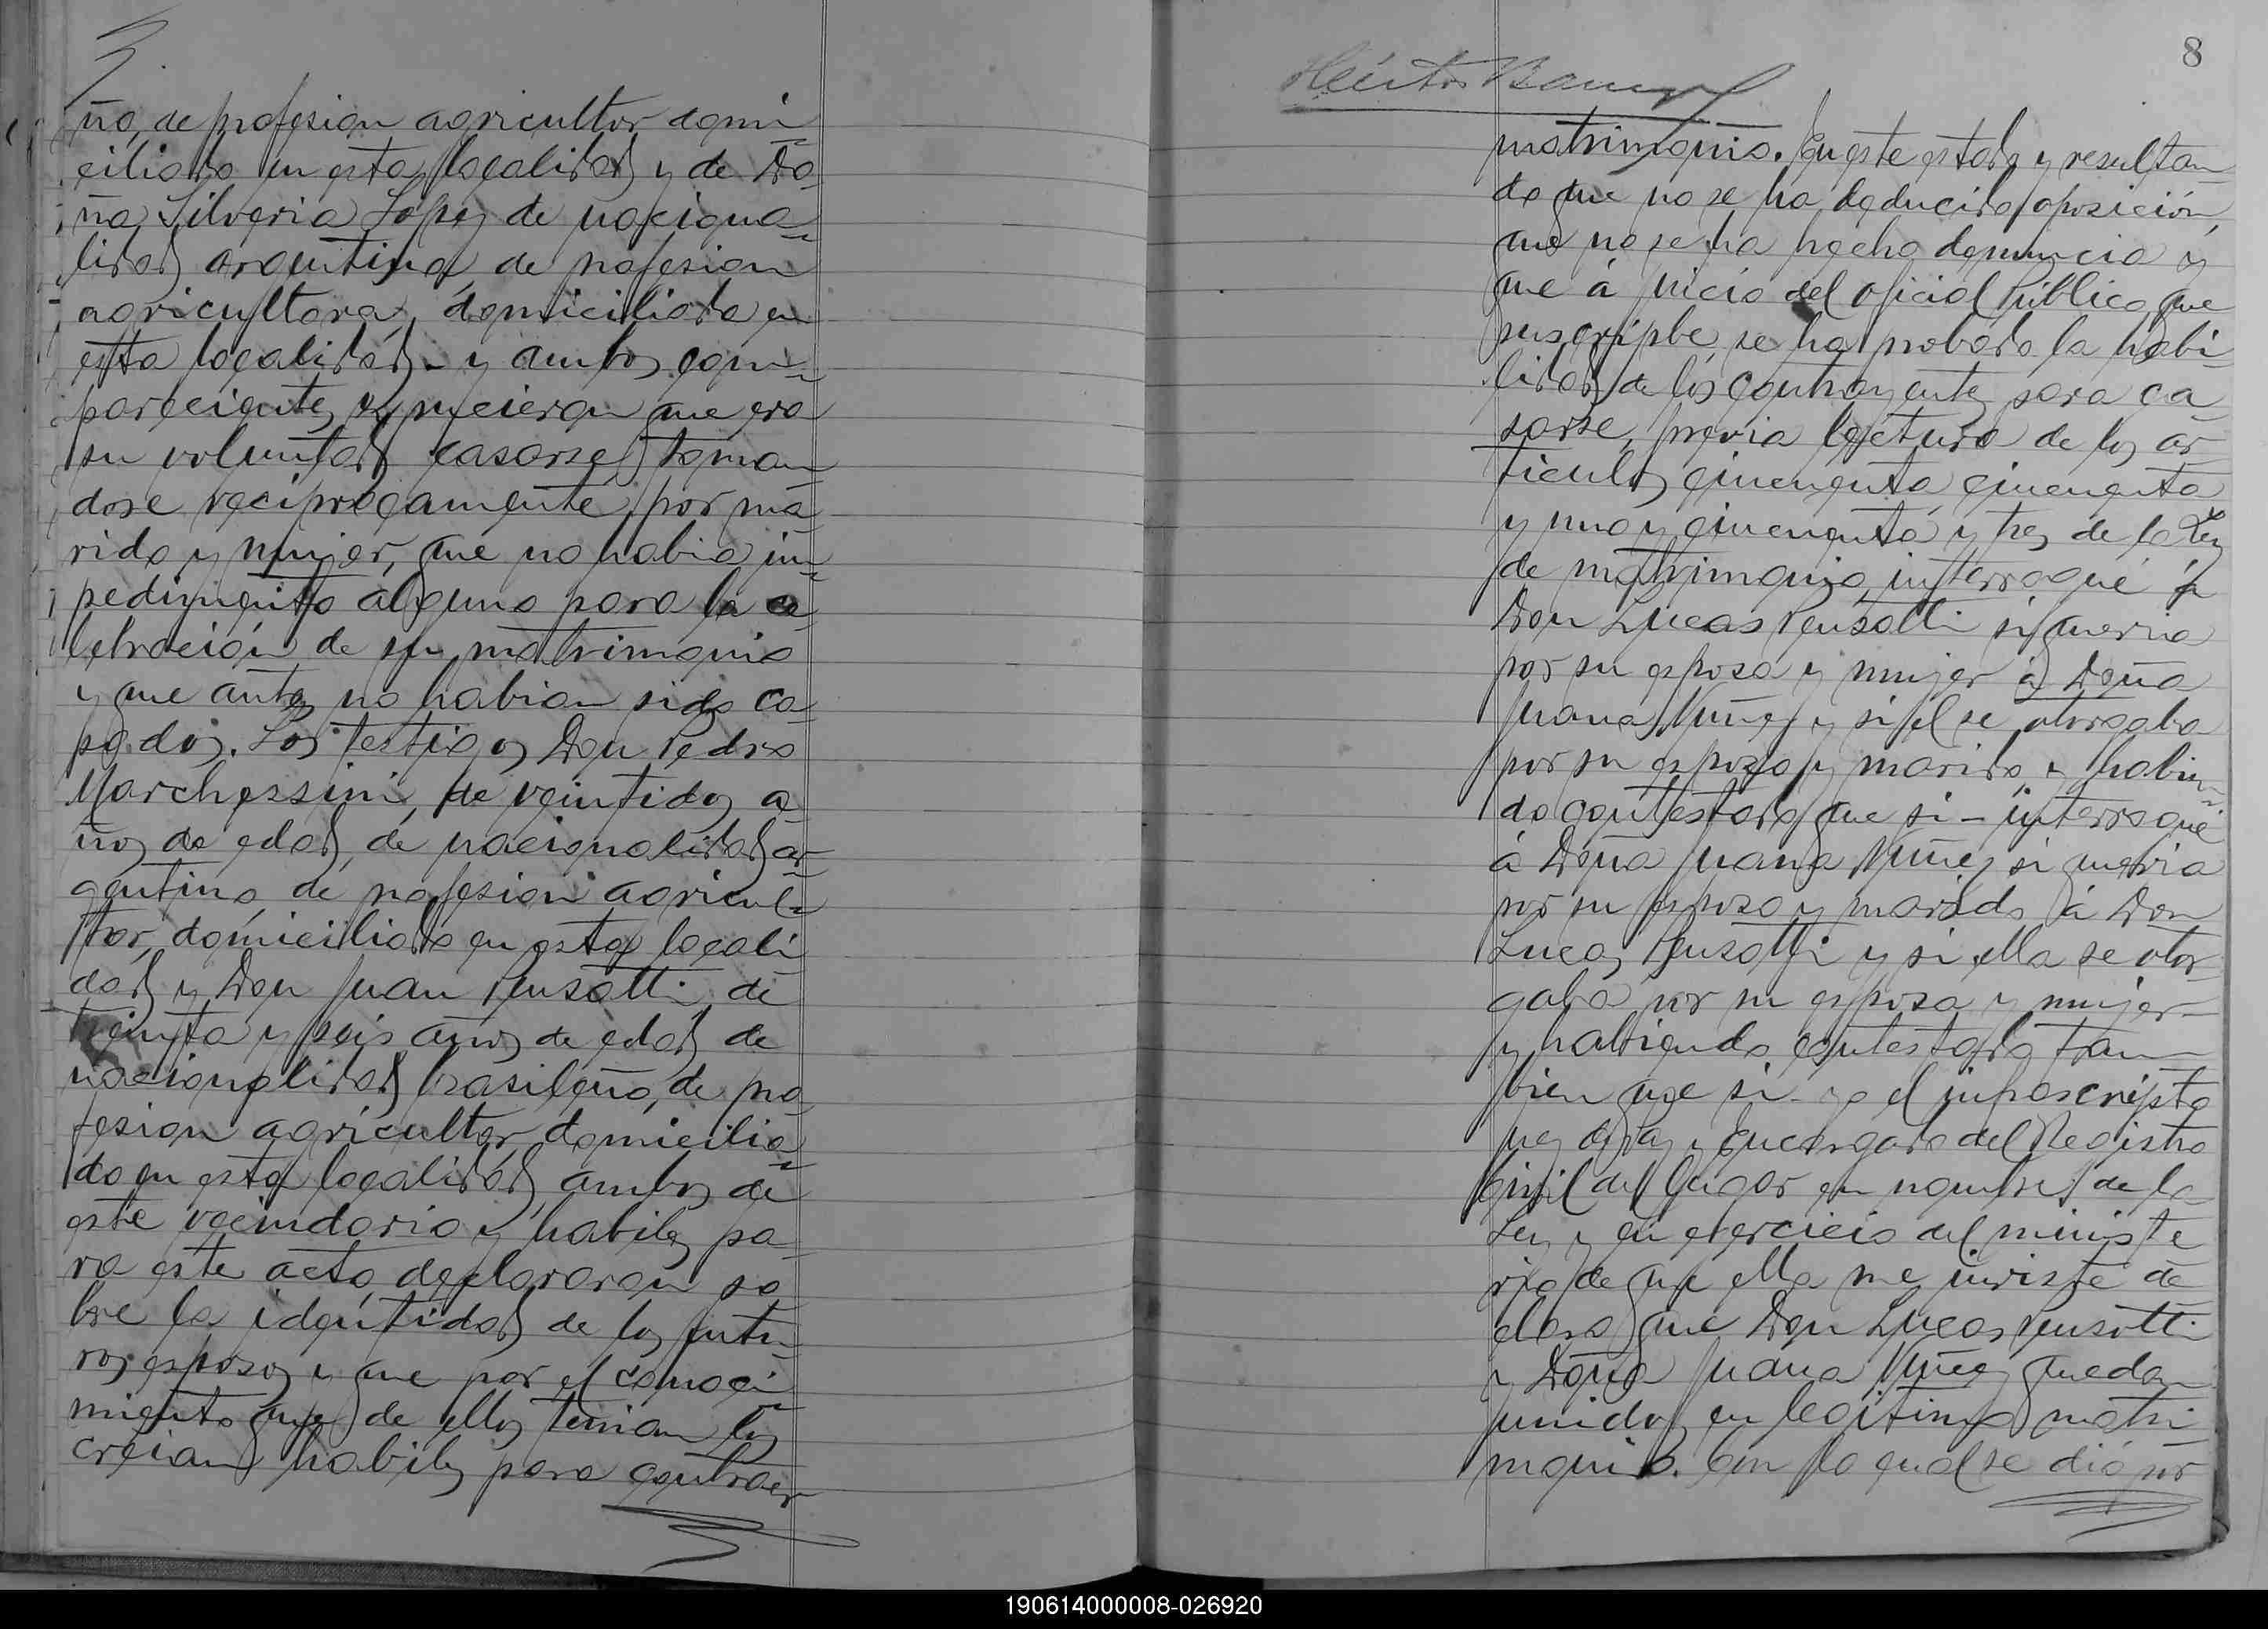 ño, de profesion agricultor domi
ciliado en esta localidad y de Do
ña Silveria Lopez de naciona=
lidad argentina, de profesion
agricultora, domiciliada en
esta localidad. y ambos com=
parecientes expucieron que era
su voluntad casarse toman
dose reciprocamente por ma
rido y mujer, que no habia im=
pedimento alguno para la ce
lebración de su matrimonio
y que antes no habian sido ca
sados. Los testigos Don Pedro
Marchessini, de veintidos a
ños de edad, de nacionalidad ar=
gentino, de profesion agricul=
tor, domiciliado en esta locali
dad y Don Juan Pensotti de
treinta y seis años de edad de
nacionalidad brasileño, de pro
fesion agricultor, domicilia=
do en esta localidad, ambos de
este vecindario y habiles pa
ra este acto, declararon so
bre la identidad de los futu=
ros esposos y que por el conoci=
miento que de ellos tenian los
creian habiles para contraer
8
Héctor
matrimonio. En este estado y resultan
do que no se ha deducido oposición,
que no se ha hecho denuncia y
que á juicio del oficial Público que
suscripbe, se ha probado la habi
lidad de los contrayentes para ca
sarse, previa lectura de los ar
ticulos cincuenta, cincuenta
y uno y cincuenta y tres de la Ley
de matrimonio, interrogué á
Don Lucas Pensotti si queria
por su esposa y mujer á Doña
Juana Nuñez y si él se otorgaba
por su esposo y marido, y habien=
do contestado que si - interrogué
á Doña Juana Nuñez si queria
por su esposo y marido á Don
Lucas Pensotti y si ella se otor
gaba por su esposa y mujer -
y habiendo contestado tam
bien que si - yo el infrascripto
Juez de Paz y Encargado del Registro
Civil del lugar en nombre de la
Ley y en ejercicio del ministe
rio de que ella me inviste de
claro que Don Lucas Pensotti
y Doña Juana Nuñez quedan
unidos en legitimo matri
monio. Con lo cual se dió por
190614000008-026920